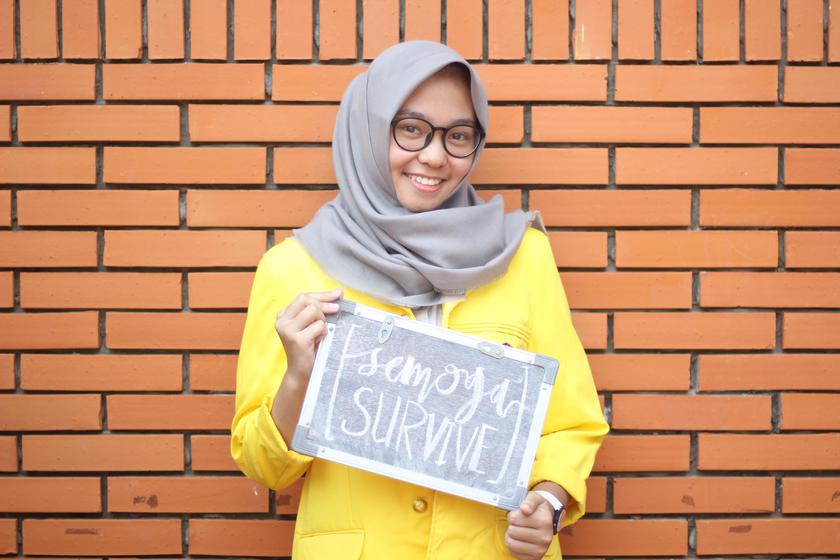 [semoga
SURVIVE]